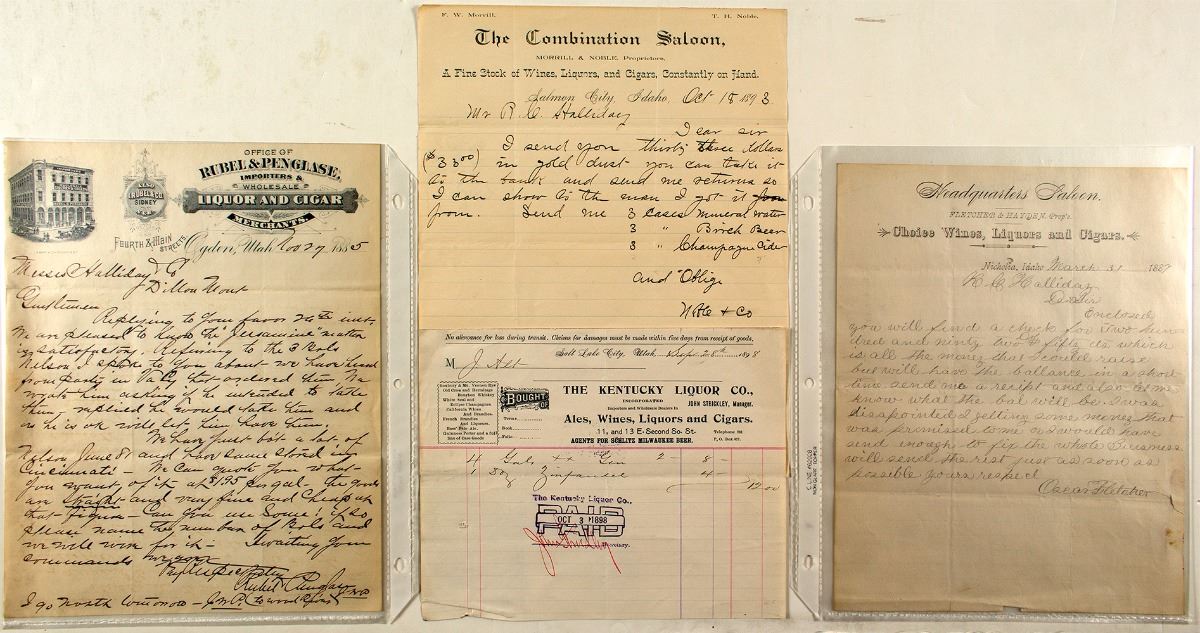 OFFICE OF
RUBEL & PENGLASE,
IMPORTERS &
WHOLESALE
LIQUOR AND CIGAR
MERCHANTS.
SIDNEY
FOURTH & MAIN
STREETS
Ogden, Utah Nov 27 1885
Messrs Halliday & Co
Dillon Mont
Gentlemen
Replying to your favor 24th inst.
We are pleased to know the "Jessamine" matter
is satisfactory. Refering to the 3 Bbls
Nelson I spoke to you about we have heard
from party in Val
wrote him asking if he intended to take
them, replied he would take them and
as he is ok will let him have them.
We have just bot a lot of
Nelson June 81 and have same stored in
Cincinnati - We can quote you what
you want of it at $1.95 en gal. The goods
are straight and very fine and cheap at
that figure - Can you use some? if so
please name the number of Bbls and
we will wire for it - Awaiting your
commands we are
Respectfully
Rubel & Penglase
I go North tomorrow - J.M.P.
F. W. Morrill. T. H. Noble.
The Combination Saloon,
MORRILL & NOBLE, Proprietors,
A Fine Stock of Wines, Liquors, and Cigars, Constantly on Hand.
Salmon City, Idaho, Oct 18 1893
Mr R. C. Halliday
Dear sir
I send you thirty three dollars
($33 00) in gold dust you can take it
to the bank and send me returns so
I can show to the man I got it from
from. Send me 3 cases Mineral water
3 " Birch Beer
3 " Champagne Cider
and Oblige
Noble & Co
No allowance for loss during transit. Claims for damages must be made within five days from receipt of goods.
Salt Lake City, Utah, Sept 28th 1898
M J Alt
BOUGHT OF
Terms
Book
Folio
THE KENTUCKY LIQUOR CO.,
INCORPORATED
JOHN STRICKLEY, Manager.
Importers and Wholesale Dealers in
Ales, Wines, Liquors and Cigars.
11, and 13 E. Second So. St.
AGENTS FOR SCHLITZ MILWAUKEE BEER.
4 Gals xx Gin 2 - 8 -
1 Zinfandel 4 -
12 00
The Kentucky Liquor Co.,
PAID
OCT 3 1898
Secretary.
Headquarters Saloon.
FLETCHER & HAYDEN, Prop's.
Choice Wines, Liquors and Cigars.
Nicholia, Idaho March 31 1887
R. C. Halliday
D. Sir
Enclosed
you will find a check for Two hun
dred and ninty two & fifty cts which
is all the money that I could raise
but will have the ballance in a short
time send me a recipt and also let me
know what the bal will be. I was
disapointed I getting some money that
was promised to me or I would have
send enough to fix the whole buisness
will send the rest just as soon as
possible yours respect
Oscar Fletcher